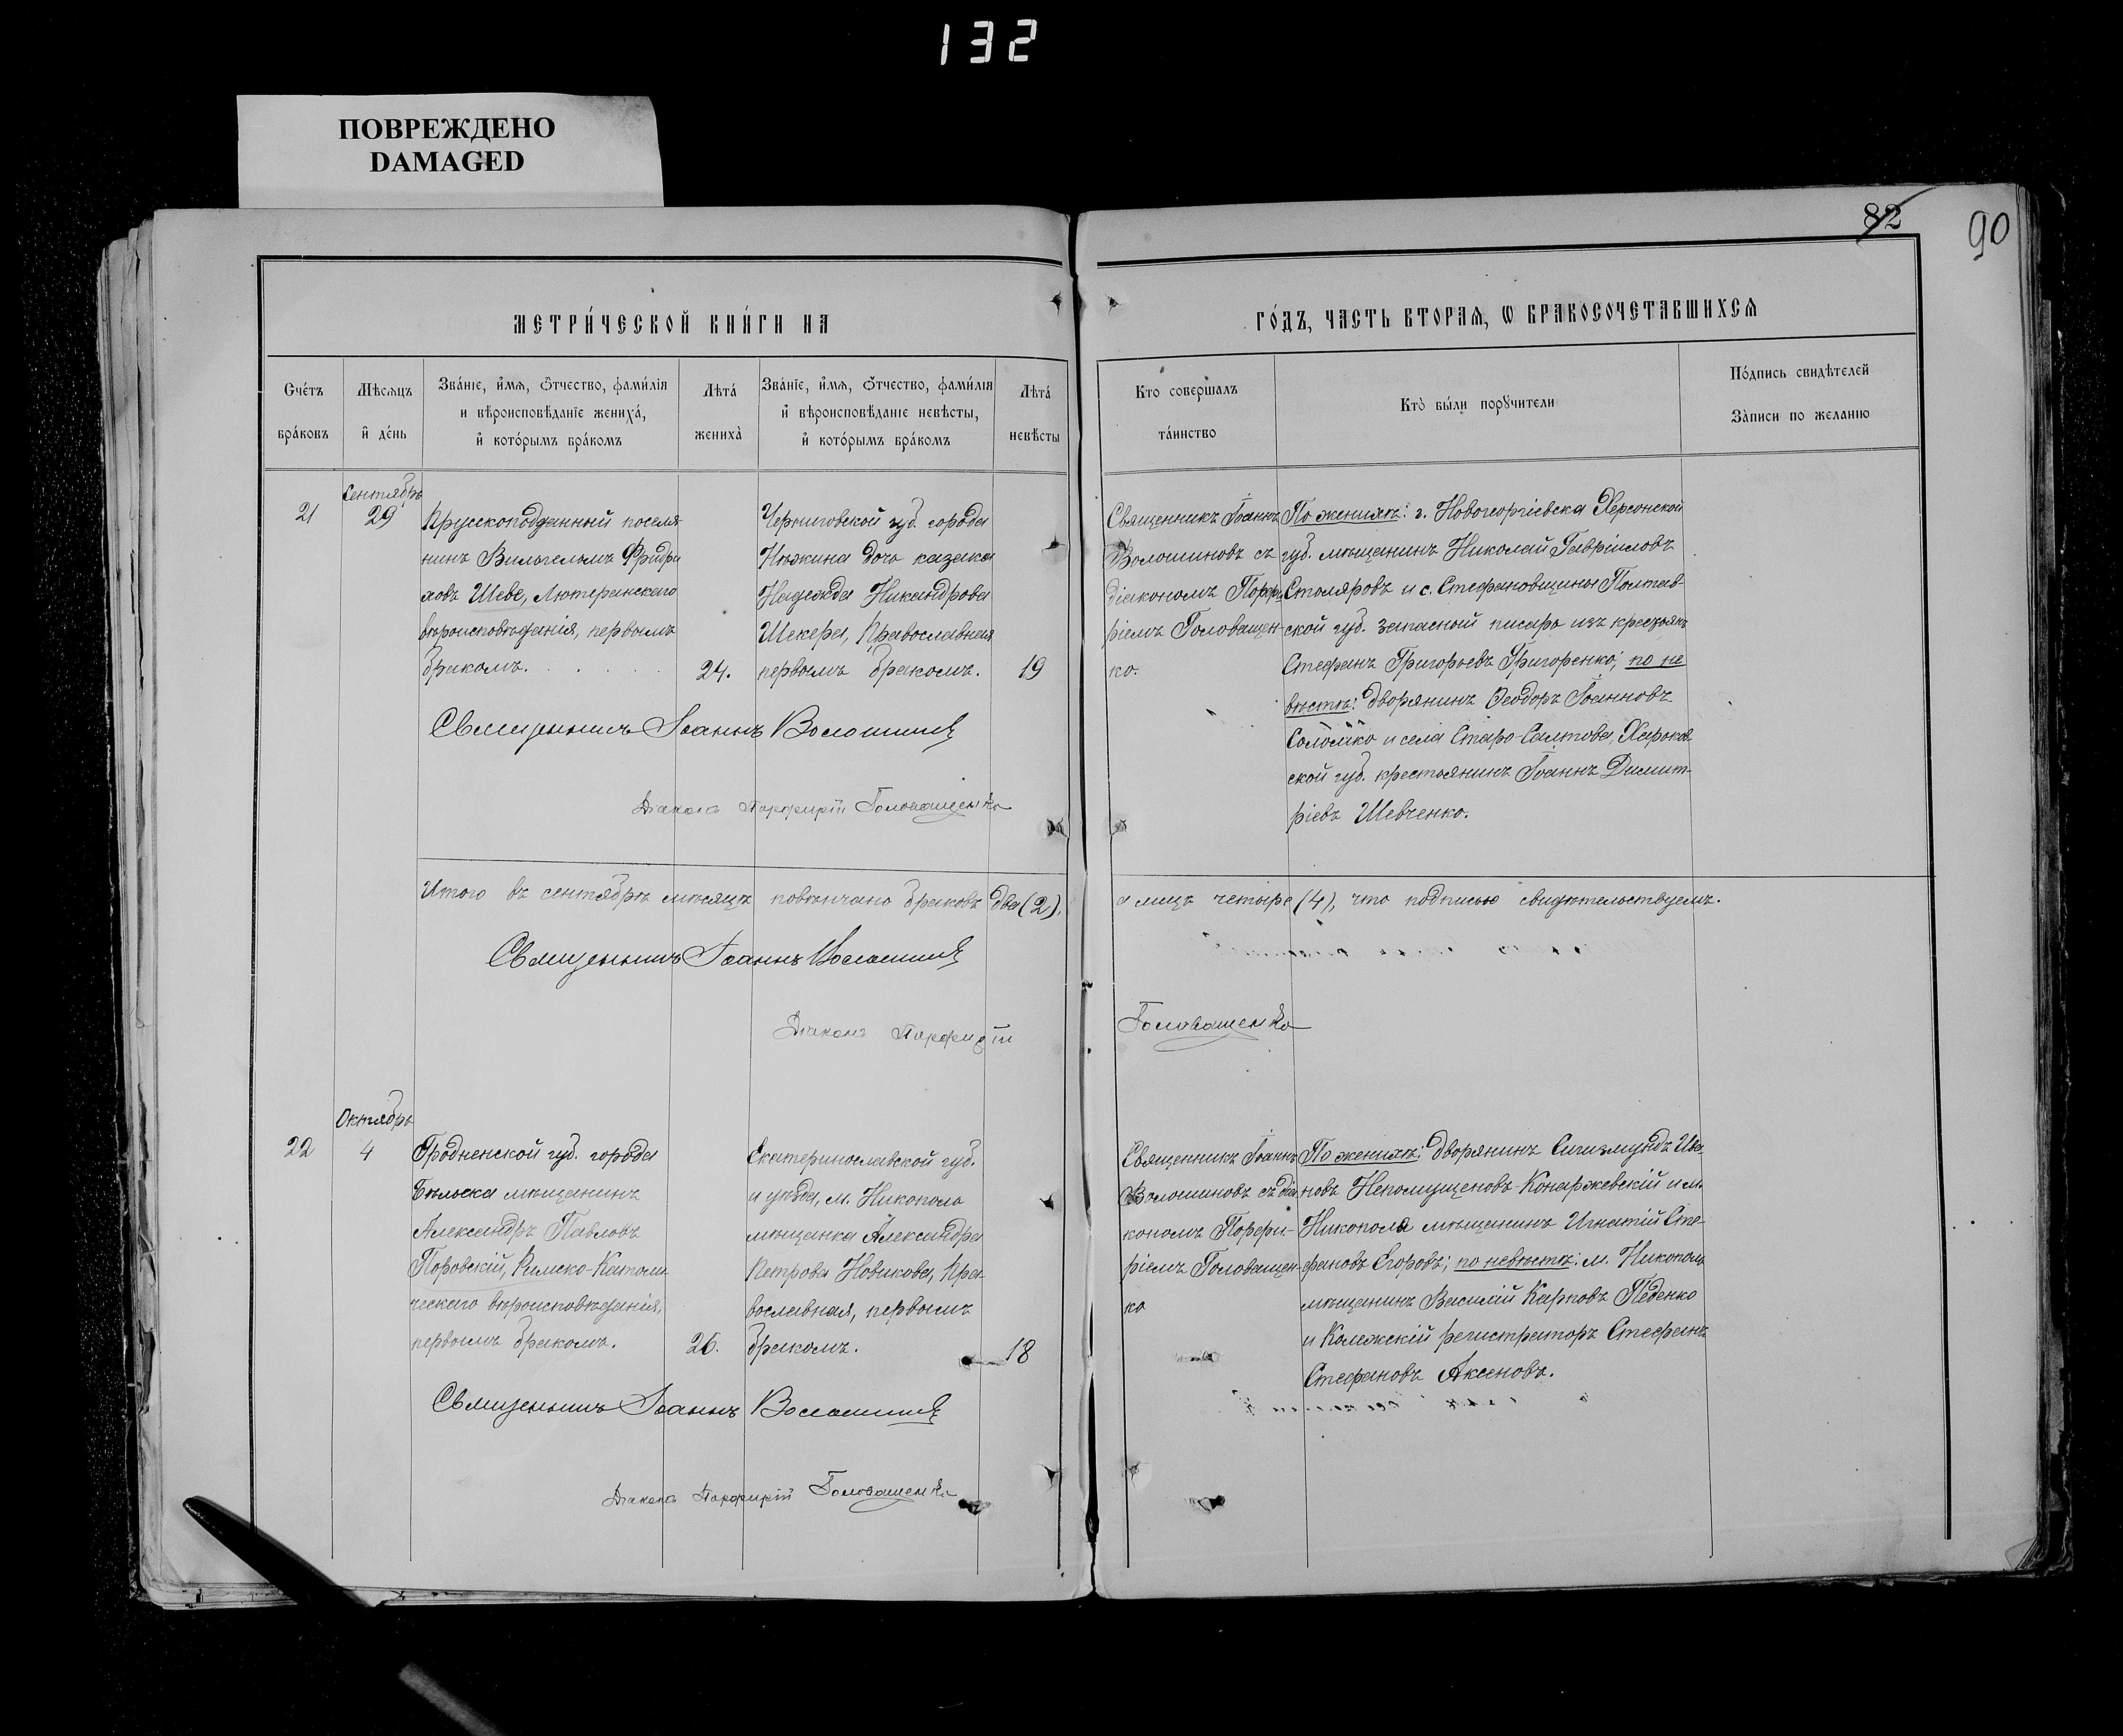 132
ПОВРЕЖДЕНО
DAMAGED
82
90
МЕТРИ́ЧЕСКОЙ КНИ́ГИ НА
ГО́ДЪ, ЧАСТЬ ВТОРАѦ, Ѡ БРАКОСОЧЕТАВШИХСѦ
Счéтъ
брáковъ
Мѣсѧцъ
и́ де́нь
Звáнїе, и́мѧ, о́тчество, фами́лїѧ
и вѣроисповѣданїе женихá,
и́ кото́рымъ брáкомъ
Лѣтá
женихà
Звáнїе, и́мѧ, о́тчество, фами́лїѧ
и́ вѣроисповѣданїе невѣсты,
и́ кото́рымъ брáкомъ
Лѣтá
невѣсты
Кто совершалъ
тáинство
Кто̀ бы́ли порꙋчители
По́дпись свидѣтелей
За̀писи по желанїю
21
Сентябрь
29
Прусскоподданный поселя-
нинъ Вильгельмъ Фридри
ховъ Шеве, Лютеранскаго
вѣроисповѣданія, первымъ
бракомъ.
24.
Черниговской губ. города
Нѣжина дочь казака
Надежда Никандрова
Шекера, Православная
первымъ бракомъ.
19
Священникъ Іоаннъ
Волошиновъ съ
діакономъ Порфи
ріемъ Головащен-
ко.
По женихѣ: г. Новогеоргіевска Херсонской
губ. мѣщанинъ Николай Гавріиловъ
Столяровъ и с. Стефановщины Полтав-
ской губ. запасный писарь изъ крестьянъ
Стефанъ Григорьевъ Григоренко; по не
вѣстѣ: дворянинъ Ѳеодоръ Іоанновъ
Соломко и села Старо-Салтова, Харьков-
ской губ. крестьянинъ Іоаннъ Димит-
ріевъ Шевченко.
Священникъ Іоаннъ Волошинов
Діаконъ Порфирій Головащенко
Итого въ сентябрѣ мѣсяцѣ повѣнчано браковъ два (2),
а лицъ четыре (4), что подписью свидѣтельствуемъ.
Священникъ Іоаннъ Волошинов
Діаконъ Порфирій
Головащенко
22
Октябрь
4
Гродненской губ. города
Бѣльска мѣщанинъ
Александръ Павловъ
Поровскій, Римско-Католи-
ческаго вѣроисповѣданія,
первымъ бракомъ.
26.
Екатеринославской губ.
и уѣзда, м. Никополя
мѣщанка Александра
Петрова Новикова, Пра-
вославная, первымъ
бракомъ.
18
Священникъ Іоаннъ
Волошиновъ съ діа
кономъ Порфи-
ріемъ Головащен-
ко
По женихѣ: дворянинъ Сигизмундъ Ива
новъ Непомущеновъ-Конаржевскій и м.
Никополя мѣщанинъ Игнатій Сте-
фановъ Егоровъ; по невѣстѣ: м. Никополя
мѣщанинъ Василій Карповъ Педенко
и Колежскій регистраторъ Стефанъ
Стефановъ Аксеновъ.
Священникъ Іоаннъ Волошинов
Діаконъ Порфирій Головащенко